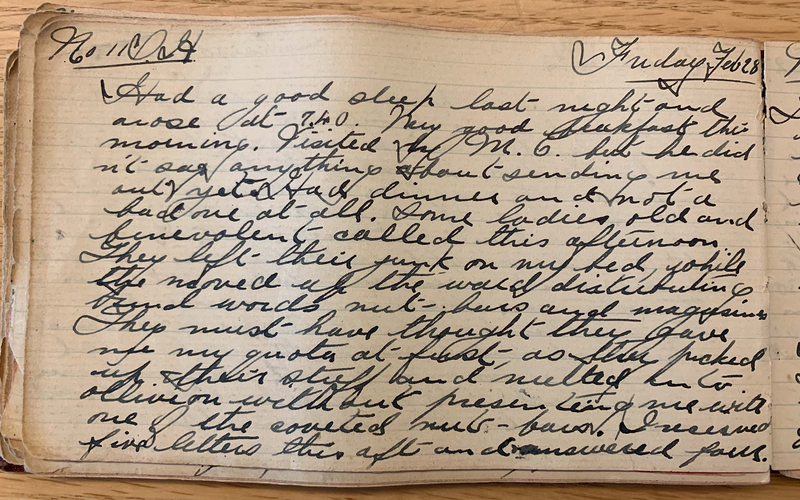 No 11 C.S.H Friday, Feb 28
Had a good sleep last night and
arose at 7.40. Very good breakfast this
morning. Visited by M. O. but he did
n't say anything about sending me
out yet. Had dinner and not a
bad one at all. Some ladies, old and
benevolent called this afternoon
They left their junk on my bed, while
the moved up the ward distributing
kind words nut-bars and magazines
They must have thought they gave
me my quota at first, as they picked
up their stuff and melted into
oblivion without presenting me with
one of the coveted nut-bars. I received
five letters this aft and answered four.